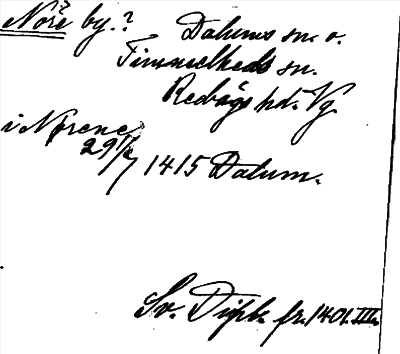 Nore by.? Dalums sn. o.
Timmelheds sn.
Redvägs hd. Vg.
i Norene
29/1 1415 Dalum.
Sv. Dipl. fr. 1401. III.